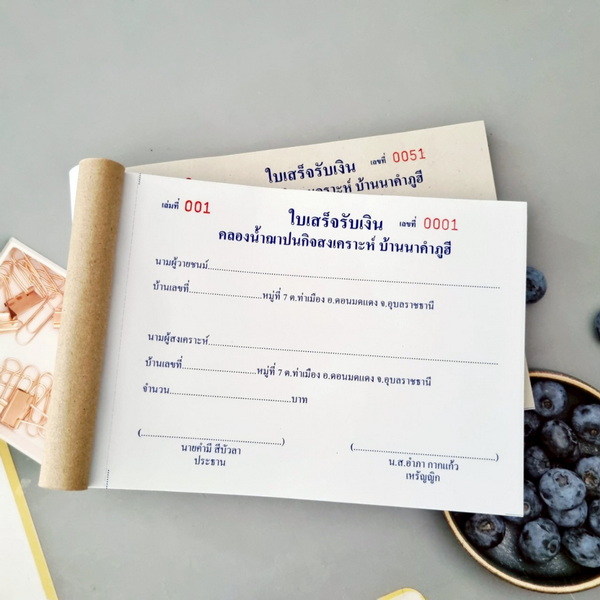 ใบเสร็จรับเงิน เลขที่ 0051
เคราะห์ บ้านนาคำภูฮี
เล่มที่ 001
ใบเสร็จรับเงิน เลขที่ 0001
คลองน้ำฌาปนกิจสงเคราะห์ บ้านนาคำภูฮี
นามผู้วายชนม์
บ้านเลขที่ หมู่ที่ 7 ต.ท่าเมือง อ.ดอนมดแดง จ.อุบลราชธานี
นามผู้สงเคราะห์
บ้านเลขที่ หมู่ที่ 7 ต.ท่าเมือง อ.ดอนมดแดง จ.อุบลราชธานี
จำนวน บาท
( ) ( )
นายคำมี สีบัวลา น.ส.อำภา กากแก้ว
ประธาน เหรัญญิก